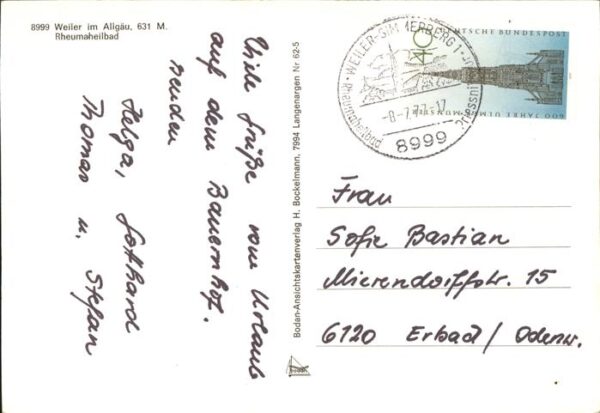 8999 Weiler im Allgäu, 631 M.
Rheumaheilbad
Viele Grüße vom Urlaub
auf dem Bauernhof.
senden
Helga, Gotthard
Thomas u. Stefan
Bodan-Ansichtskartenverlag H. Bockelmann, 7994 Langenargen Nr 62-5
WEILER-SIMMERBERG 1
Rheumaheilbad
-8-7.77-17
8999
40
DEUTSCHE BUNDESPOST
600 JAHRE ULMER MÜNSTER
Frau
Sofie Bastian
Mierendorffstr. 15
6120 Erbach/Odenw.